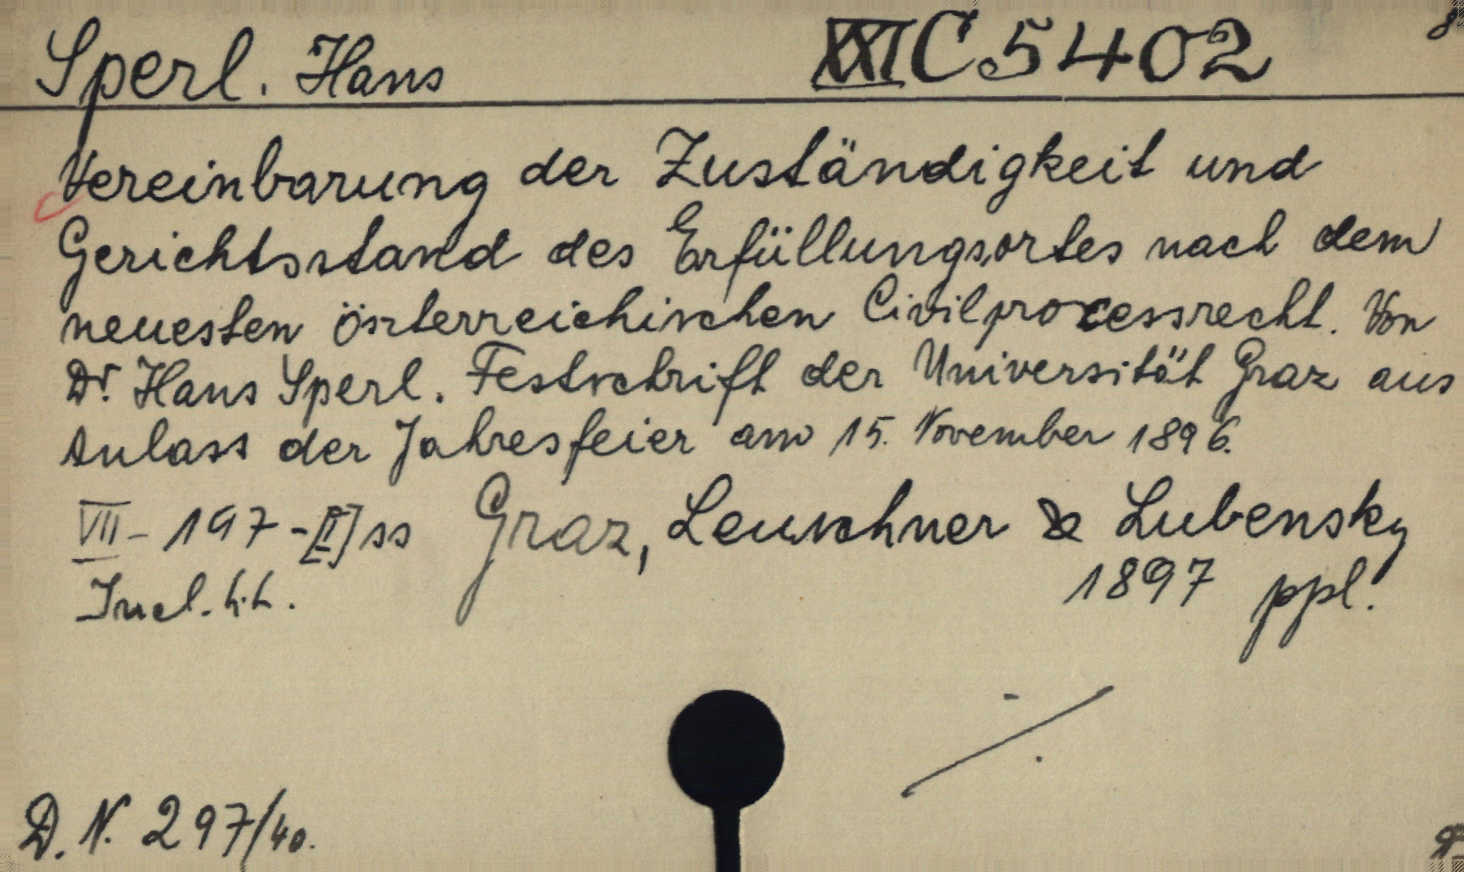 Sperl. Hans XXI C 5402 8°
Vereinbarung der Zuständigkeit und
Gerichtsstand des Erfüllungsortes nach dem
neuesten österreichischen Civilprocessrecht. Von
Dr. Hans Sperl. Festschrift der Universität Graz aus
Anlass der Jahresfeier am 15. November 1896.
VII - 197 - [I] ss Graz, Leuschner & Lubensky
1897 ppl.
D. N. 297/40.